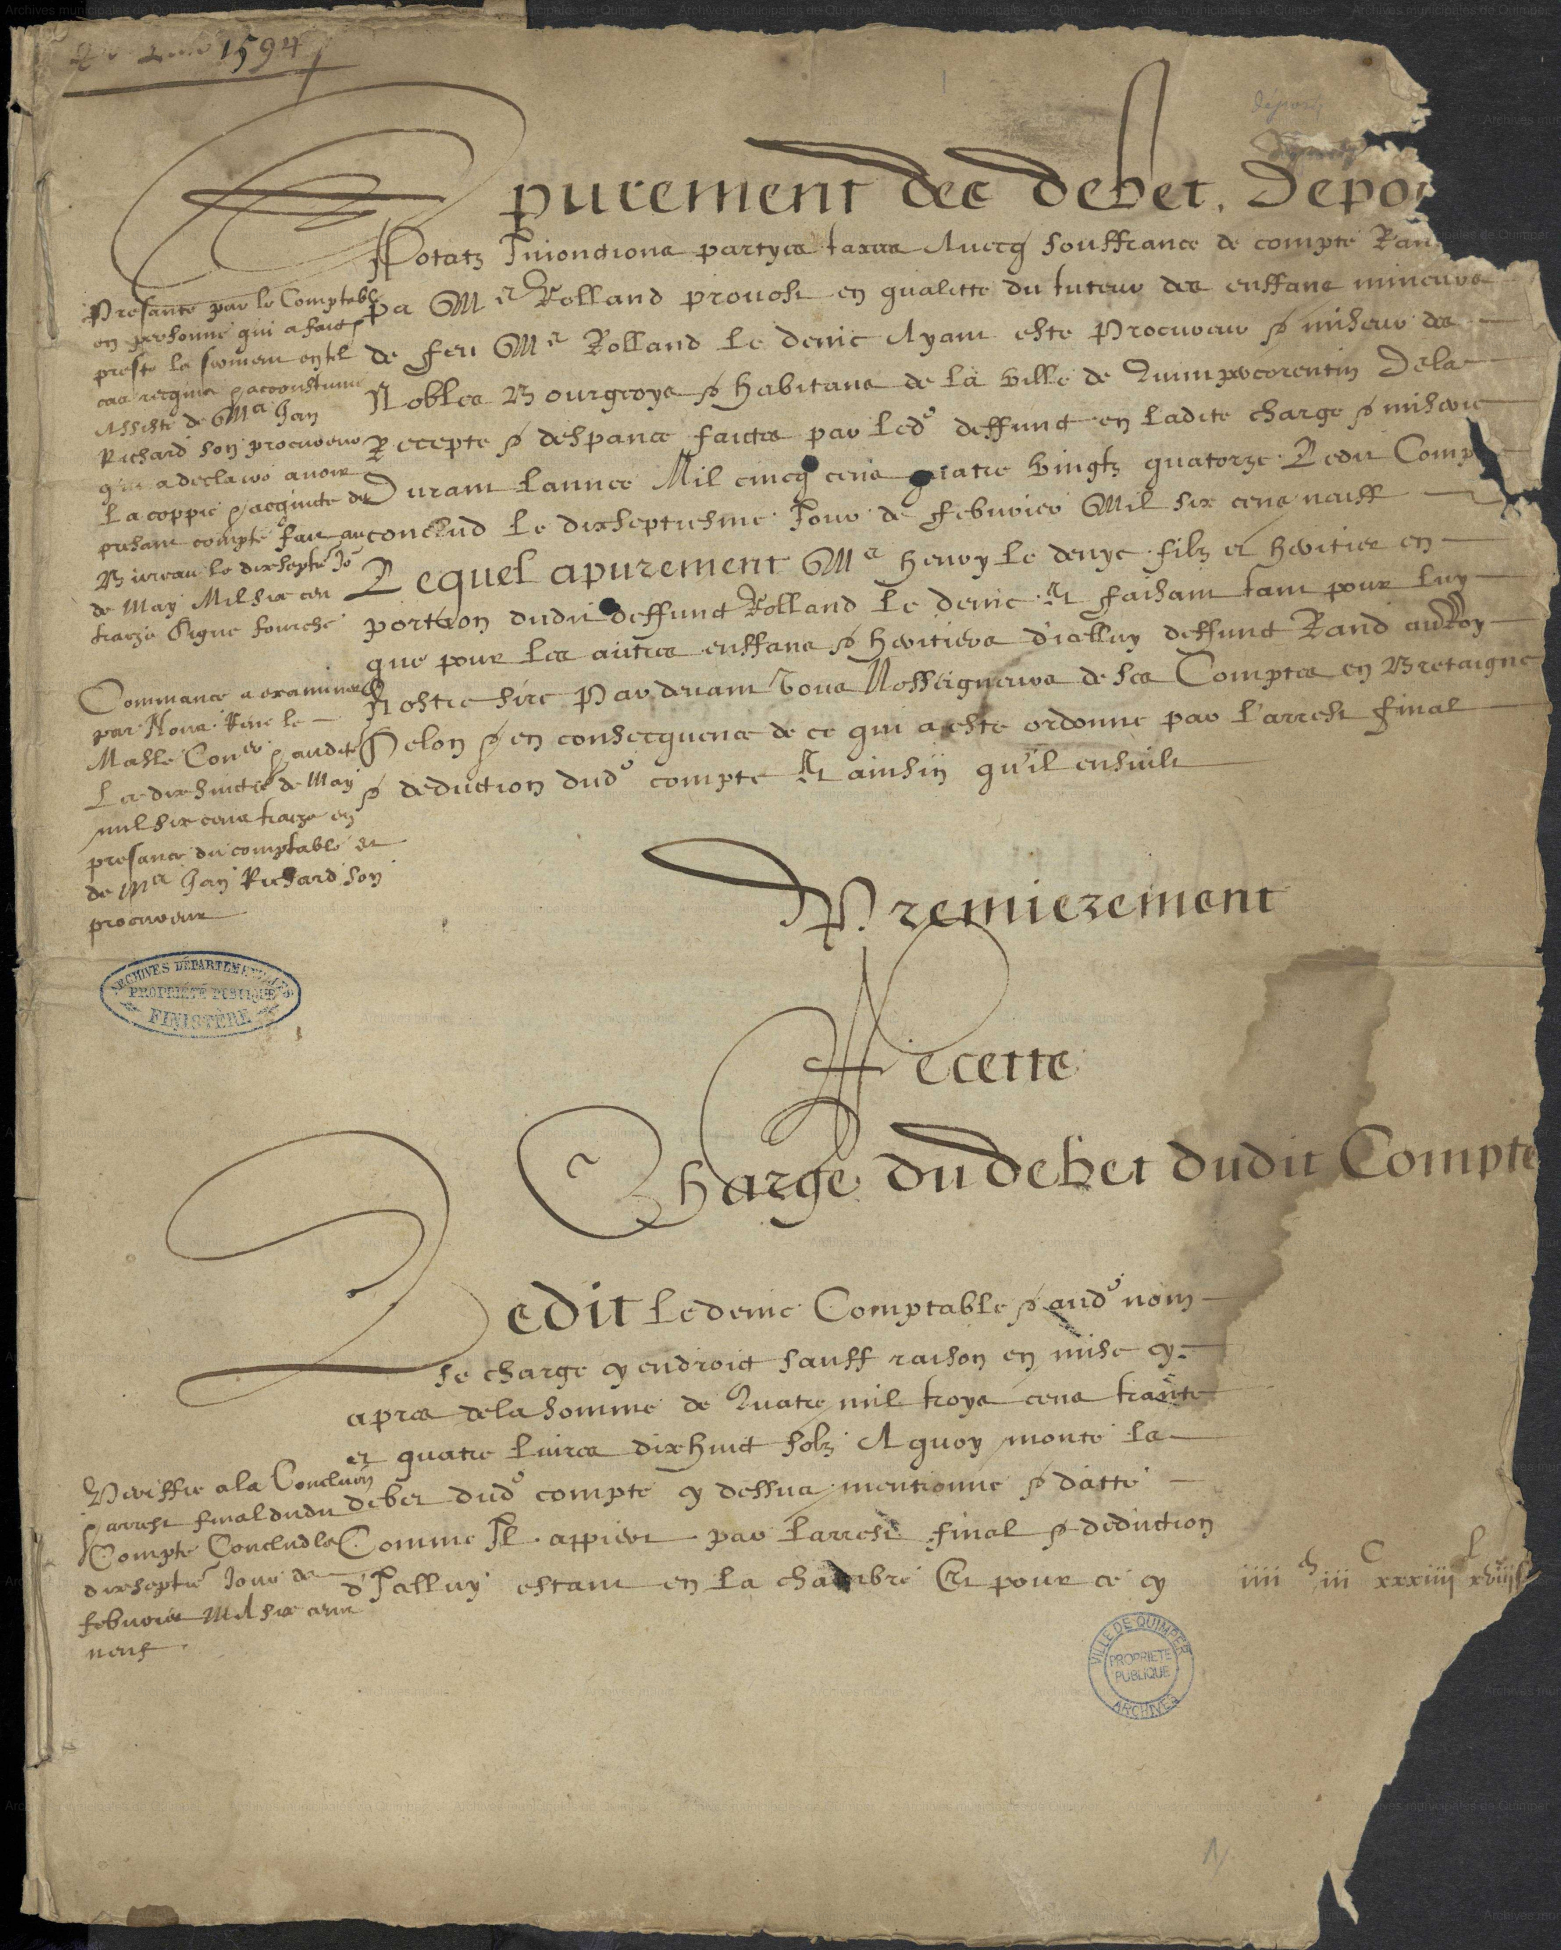 1594
Apurement des debet, Depor
Notatz Inionctions partyes taxees Auecq souffrance de compte Ran
Pa Me Rolland prouost en qualitte du tuteur des enffans mineurs
de feu Me Rolland le denic Ayant esté Procureur & miseur des
Nobles Bourgeoys & habitans de la ville de Quimpercorentin De la
Recepte & despance faictes par led deffunct en ladite charge & miserie
Durant lannee Mil cincq cens quatre vingtz quatorze Ledit Compte
conclud le dixseptiesme Jour de febvrier Mil six cens neuff
Lequel apurement Me henry le denyc filz et heritier en
portion dudit deffunct Rolland le denic Et faisant tant pour luy
que pour les autres enffans & heritiers d'icelluy deffunct Rand au Roy
Nostre sire Par devant vous Nosseigneurs de ses Comptes en Bretaigne
Selon & en consecquence de ce qui a esté ordonne par l'arrest final
& deduction dud compte Et ainsin qu'il ensuilt
Presanté par le Comptable
en personne qui a faict &
presté le serment en tel
cas requis & accoustumé
Assisté de Me Jan
Richard son procureur
qui a declaré avoir
la coppie & acquictz du
presant compte fait au
Bureau le dixsepte Jo
de May Mil six cens
traeze Signe fourche
Commance a examiner
par Nous Rene le
Masle Coner & auditr
Le dixhuictie de May
mil six cens traeze en
presance du comptable et
de Me Jan Richard son
procureur
ARCHIVES DÉPARTEMENTALES
PROPRIÉTÉ PUBLIQUE
FINISTÈRE
Premierement
Recette
Charge du debet dudit Compte
Ledit le denic Comptable & aud nom
se charge cy endroict sauff raison en mise cy
apres de la somme de Quatre mil troys cens trante
et quatre livres dixhuict solz A quoy monte la
debet dud compte cy dessus mentionné & datté
Comme Il appiert par larrest final & deduction
d'Icelluy estant en la chambre Et pour ce cy iiii m iii C xxxiiii l xviii s
Veriffie a la Conclusion
& arrest final dudit
Compte Conclud le
dixseptie Jour de
febvrier Mil six cens
neuf
VILLE DE QUIMPER
PROPRIETE
PUBLIQUE
ARCHIVES
1